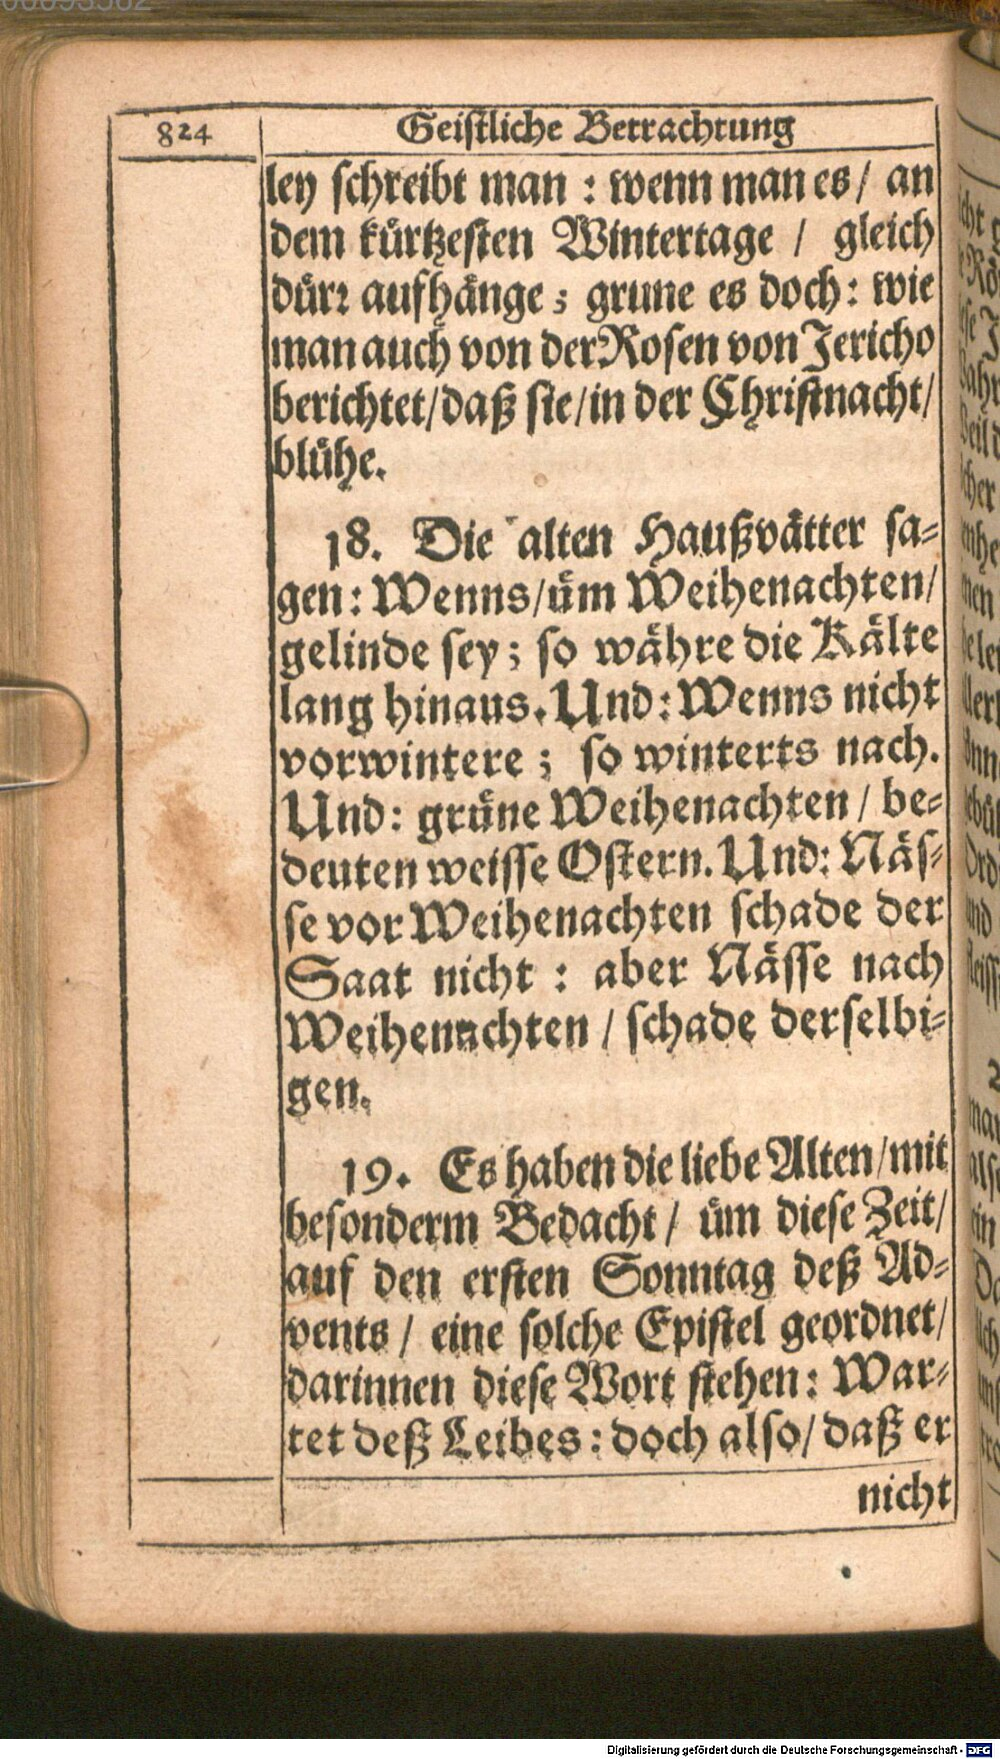 824
Geistliche Betrachtung
ley schreibt man : wenn man es / an
dem kürtzesten Wintertage / gleich
dürr aufhänge ; grune es doch : wie
man auch von der Rosen von Jericho
berichtet / daß sie / in der Christnacht /
blühe.
18. Die alten Haußvätter sa=
gen : Wenns / üm Weihenachten /
gelinde sey ; so währe die Kälte
lang hinaus. Und : Wenns nicht
vorwintere ; so winterts nach.
Und : grüne Weihenachten / be=
deuten weisse Ostern. Und : Näs=
se vor Weihenachten schade der
Saat nicht : aber Nässe nach
Weihenachten / schade derselbi=
gen.
19. Es haben die liebe Alten / mit
besonderm Bedacht / üm diese Zeit /
auf den ersten Sonntag deß Ad=
vents / eine solche Epistel geordnet /
darinnen diese Wort stehen : War=
tet deß Leibes : doch also / daß er
nicht
Digitalisierung gefördert durch die Deutsche Forschungsgemeinschaft - DFG